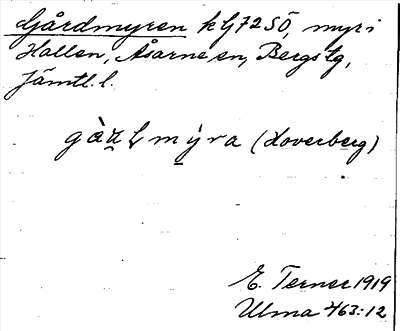 Gårdmyren kG72SÖ, myr i
Hallen, Åsarne sn, Bergs tg,
Jämtl. l.
gàṟḷmỳra (Hoverberg)
E. Terner 1919
Ulma 463:12